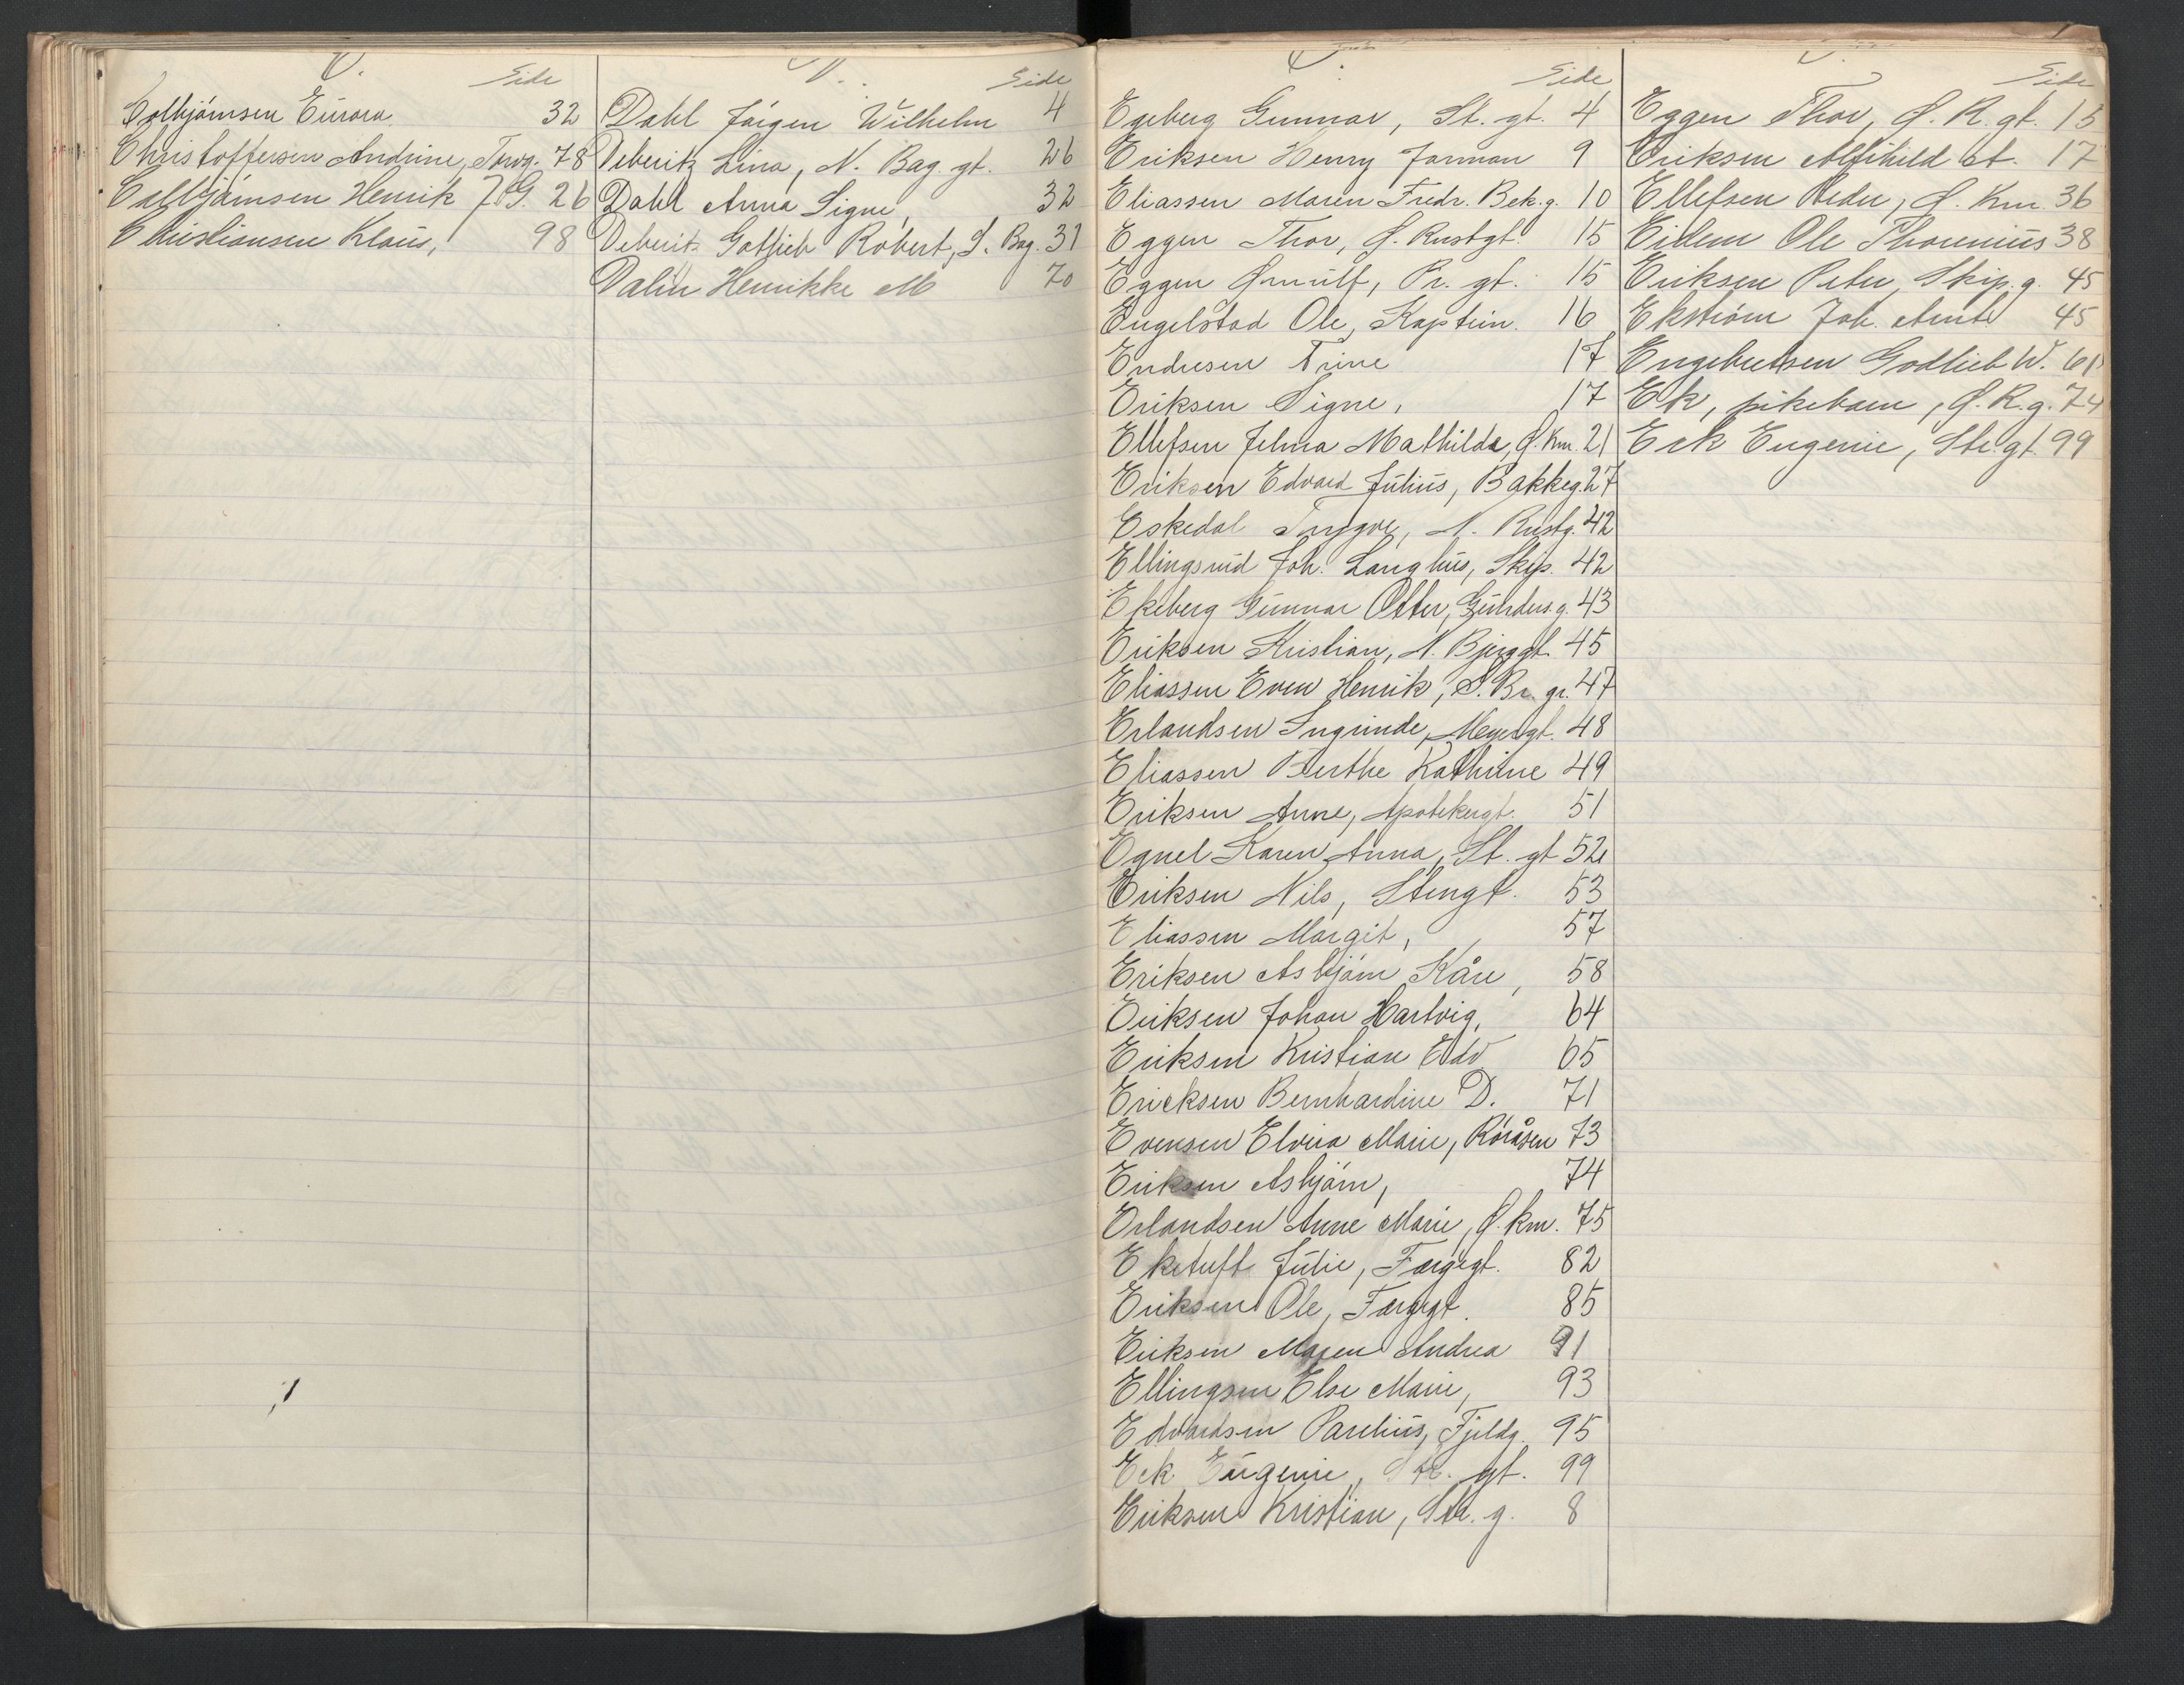 Side
Colbjørnsen Eurora 32
Christoffersen Andrine, Torvg. 78
Colbjørnsen Henrik J. G. 26
Christiansen Klaus, 98
Side
Dahl Jørgen Wilhelm 4
Deberitz Lina, N. Bag. gt. 26
Dahl Anna Signe, 32
Deberitz Gotlieb Robert, S. Bag. 31
Dalin Henrikke M 70
Side
Egeberg Gunnar, St. gt. 4
Eriksen Henry Jarman 9
Eliassen Maren Fredr. Bek. g. 10
Eggen Thor, Ø. Rustgt. 15
Eggen Ørnulf, Pr. gt. 15
Engelstad Ole, Kaptein. 16
Endresen Trine 17
Eriksen Signe, 17
Ellefsen Jelma Mathilda, Ø. Km. 21
Eriksen Edvard Julius, Bakkeg. 27
Eskedal Trygve, N. Rustg. 42
Ellingsrud Joh. Langhus, Skip. 42
Ekeberg Gunnar Otter, Gunders. g. 43
Eriksen Kristian, N. Bjerggt. 45
Eliassen Even Henrik, S. Br. gr. 47
Erlandsen Ingrinde, Meyergt. 48
Eliassen Berthe Kathrine 49
Eriksen Anne, Apotekergt. 51
Egnel Karen Anna, St. gt 52
Eriksen Nils, Stengt. 53
Eliassen Margit, 57
Eriksen Asbjørn Kåre, 58
Eriksen Johan Hartvig, 64
Eriksen Kristian Edv 65
Ericksen Bernhardine D. 71
Evensen Elvira Marie, Røråsen 73
Eriksen Asbjørn, 74
Erlandsen Anne Marie, Ø. km. 75
Eketuft Julie, Færgegt. 82
Eriksen Ole, Færgegt. 85
Eriksen Maren Andrea 91
Ellingsen Else Marie, 93
Edvardsen Parelius, Fjeldg. 95
Eck Eugenie, Str. gt. 99
Eriksen Kristian, Str. g. 8
Side
Eggen Thor, Ø. R. gt. 15
Eriksen Alfhild et. 17
Ellefsen Peder, Ø. Km. 36
Eidem Ole Thorenius 38
Eriksen Peter, Skip. g. 45
Ekstrøm Joh. Arnt 45
Engebretsen Godlieb W. 61
Ek, pikebarn, Ø. R. g. 74
Eck Eugenie, Str. gt. 99